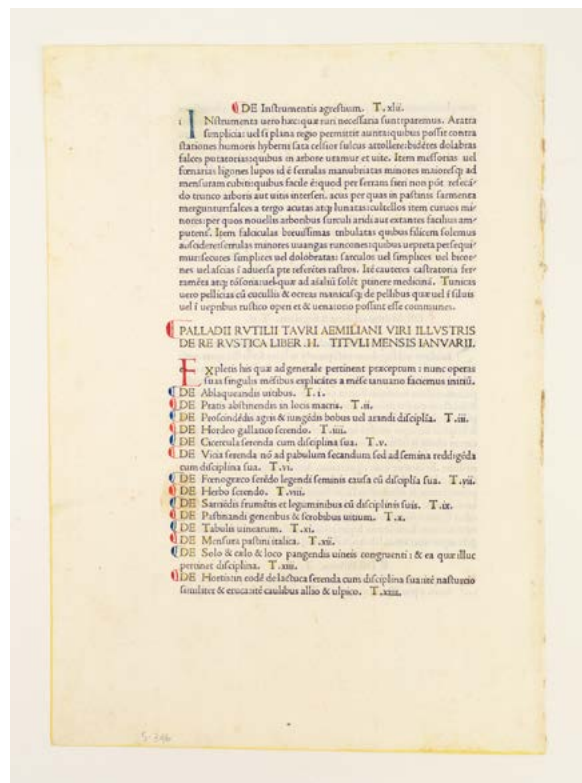 DE Instrumentis agrestium. T. xlii.
i Nstrumenta uero hæc: quæ ruri necessaria sunt paremus. Aratra
simplicia: uel si plana regio permittit aurita: quibus possit contra
stationes humoris hyberni sata celsior sulcus attollere: bidētes dolabras
falces putatorias: quibus in arbore utamur et uite. Item messorias uel
fœnarias ligones lupos id ē serrulas manubriatas minores maioresq; ad
mensuram cubiti: quibus facile ē: quod per serram fieri non pōt resecā-
do trunco arboris aut uitis interseri. acus per quas in pastinis sarmenta
merguntur: falces a tergo acutas atq; lunatas: cultellos item curuos mi-
nores: per quos nouellis arboribus surculi aridi aut extantes facilius am-
putent. Item falciculas breuissimas tribulatas quibus filicem solemus
abscidere: serrulas minores uuangas runcones: quibus uepreta persequi-
mur: secures simplices uel dolobratas: sarculos uel simplices uel bicor-
nes uel ascias ī aduersa pte referētes rastros. Itē cauteres castratoria fer-
ramēta atq; tōsoria: uel quæ ad aīaliū solēt ptinere medicinā. Tunicas
uero pellicias cū cucullis & ocreas manicasq; de pellibus quæ uel ī siluis
uel ī uepribus rustico operi et & uenatorio possint esse communes.
PALLADII RVTILII TAVRI AEMILIANI VIRI ILLVSTRIS
DE RE RVSTICA LIBER .II. TITVLI MENSIS IANVARII.
E xpletis his quæ ad generale pertinent præceptum: nunc operas
suas singulis mēsibus explicātes a mēse ianuario faciemus initiū.
DE Ablaqueandis uitibus. T. i.
DE Pratis abstinendis in locis macris. T. ii.
DE Proscindēdis agris & iungēdis bobus uel arandi disciplīa. T. iii.
DE Hordeo gallatico serendo. T. iiii.
DE Cicercula serenda cum disciplina sua. T. v.
DE Vicia serenda nō ad pabulum secandum sed ad semina reddigēda
cum disciplina sua. T. vi.
DE Fœnogræco serēdo legendi seminis causa cū disciplīa sua. T. vii.
DE Herbo serendo. T. viii.
DE Sarriēdis frumētis et leguminibus cū disciplinis suis. T. ix.
DE Pastinandi generibus & scrobibus uitium. T. x.
DE Tabulis uinearum. T. xi.
DE Mensura pastini italica. T. xii.
DE Solo & cælo & loco pangendis uineis congruenti: & ea quæ illuc
pertinet disciplina. T. xiii.
DE Hortis: in eodē de lactuca serenda cum disciplina sua: itē nasturcio
similiter & eruca: itē caulibus allio & ulpico. T. xiiii.